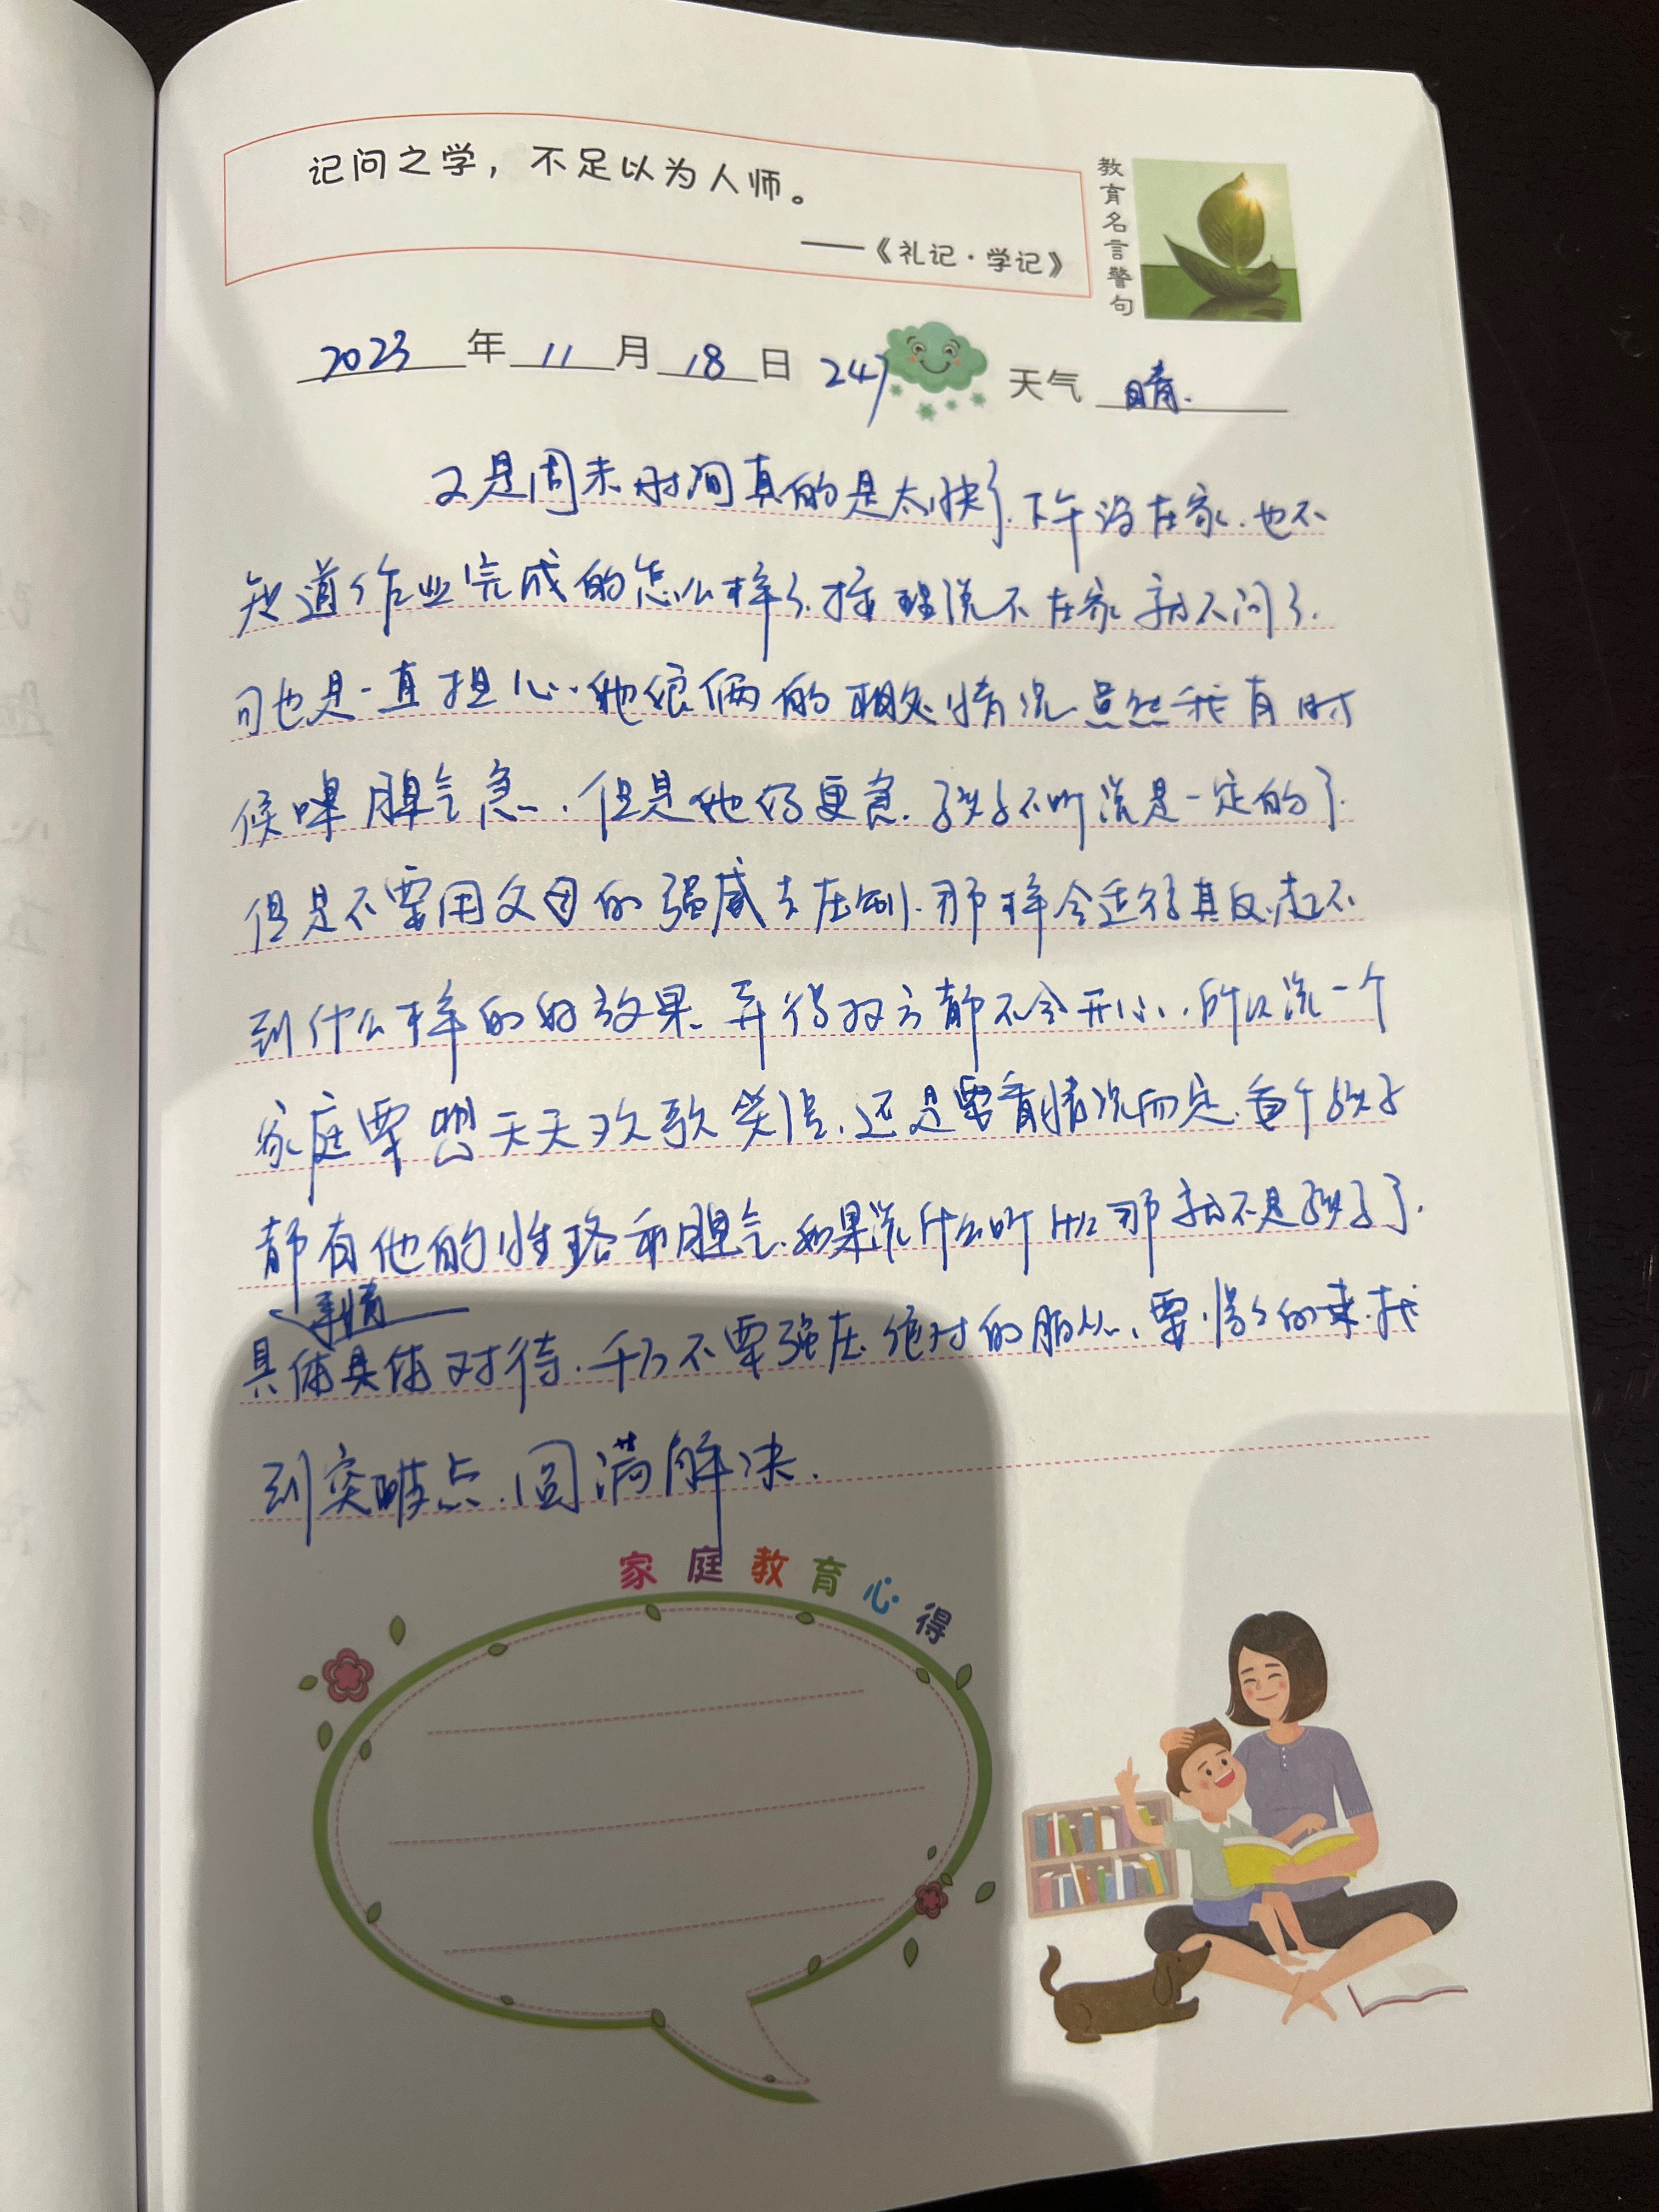 记问之学，不足以为人师。
——《礼记·学记》
教育名言警句
2023年11月18日 247 天气 晴.
又是周末时间真的是太快了.下午没在家.也不
知道作业完成的怎么样了.按理说不在家就不问了.
可也是一直担心.她娘俩的相处情况.虽然我有时
候嗓脾气急.但是她妈更急.孩子不听说是一定的了.
但是不要用父母的强威去压制.那样会适得其反.起不
到什么样的好效果.弄得双方都不会开心.所以说一个
家庭要想天天欢歌笑语.还是要看情况而定.每个孩子
都有他的性格和脾气.如果说什么听什么那就不是孩子了.
事情
具体具体对待.千万不要强压.绝对的服从.要.慢慢的来.找
到突破点.圆满解决.
家庭教育心得